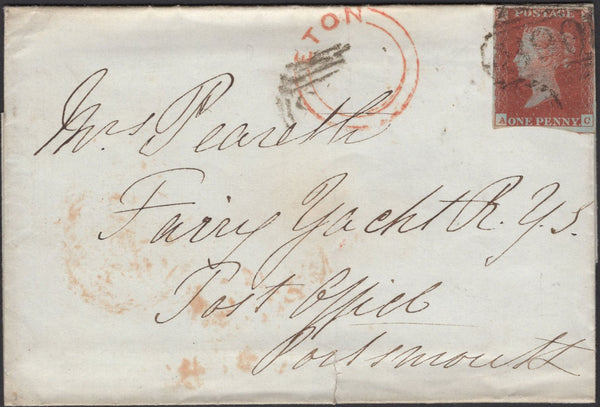 ETON
POSTAGE
A C
ONE PENNY
Mrs Peareth
Fairy Yacht R.Y.S.
Post Office
Portsmouth